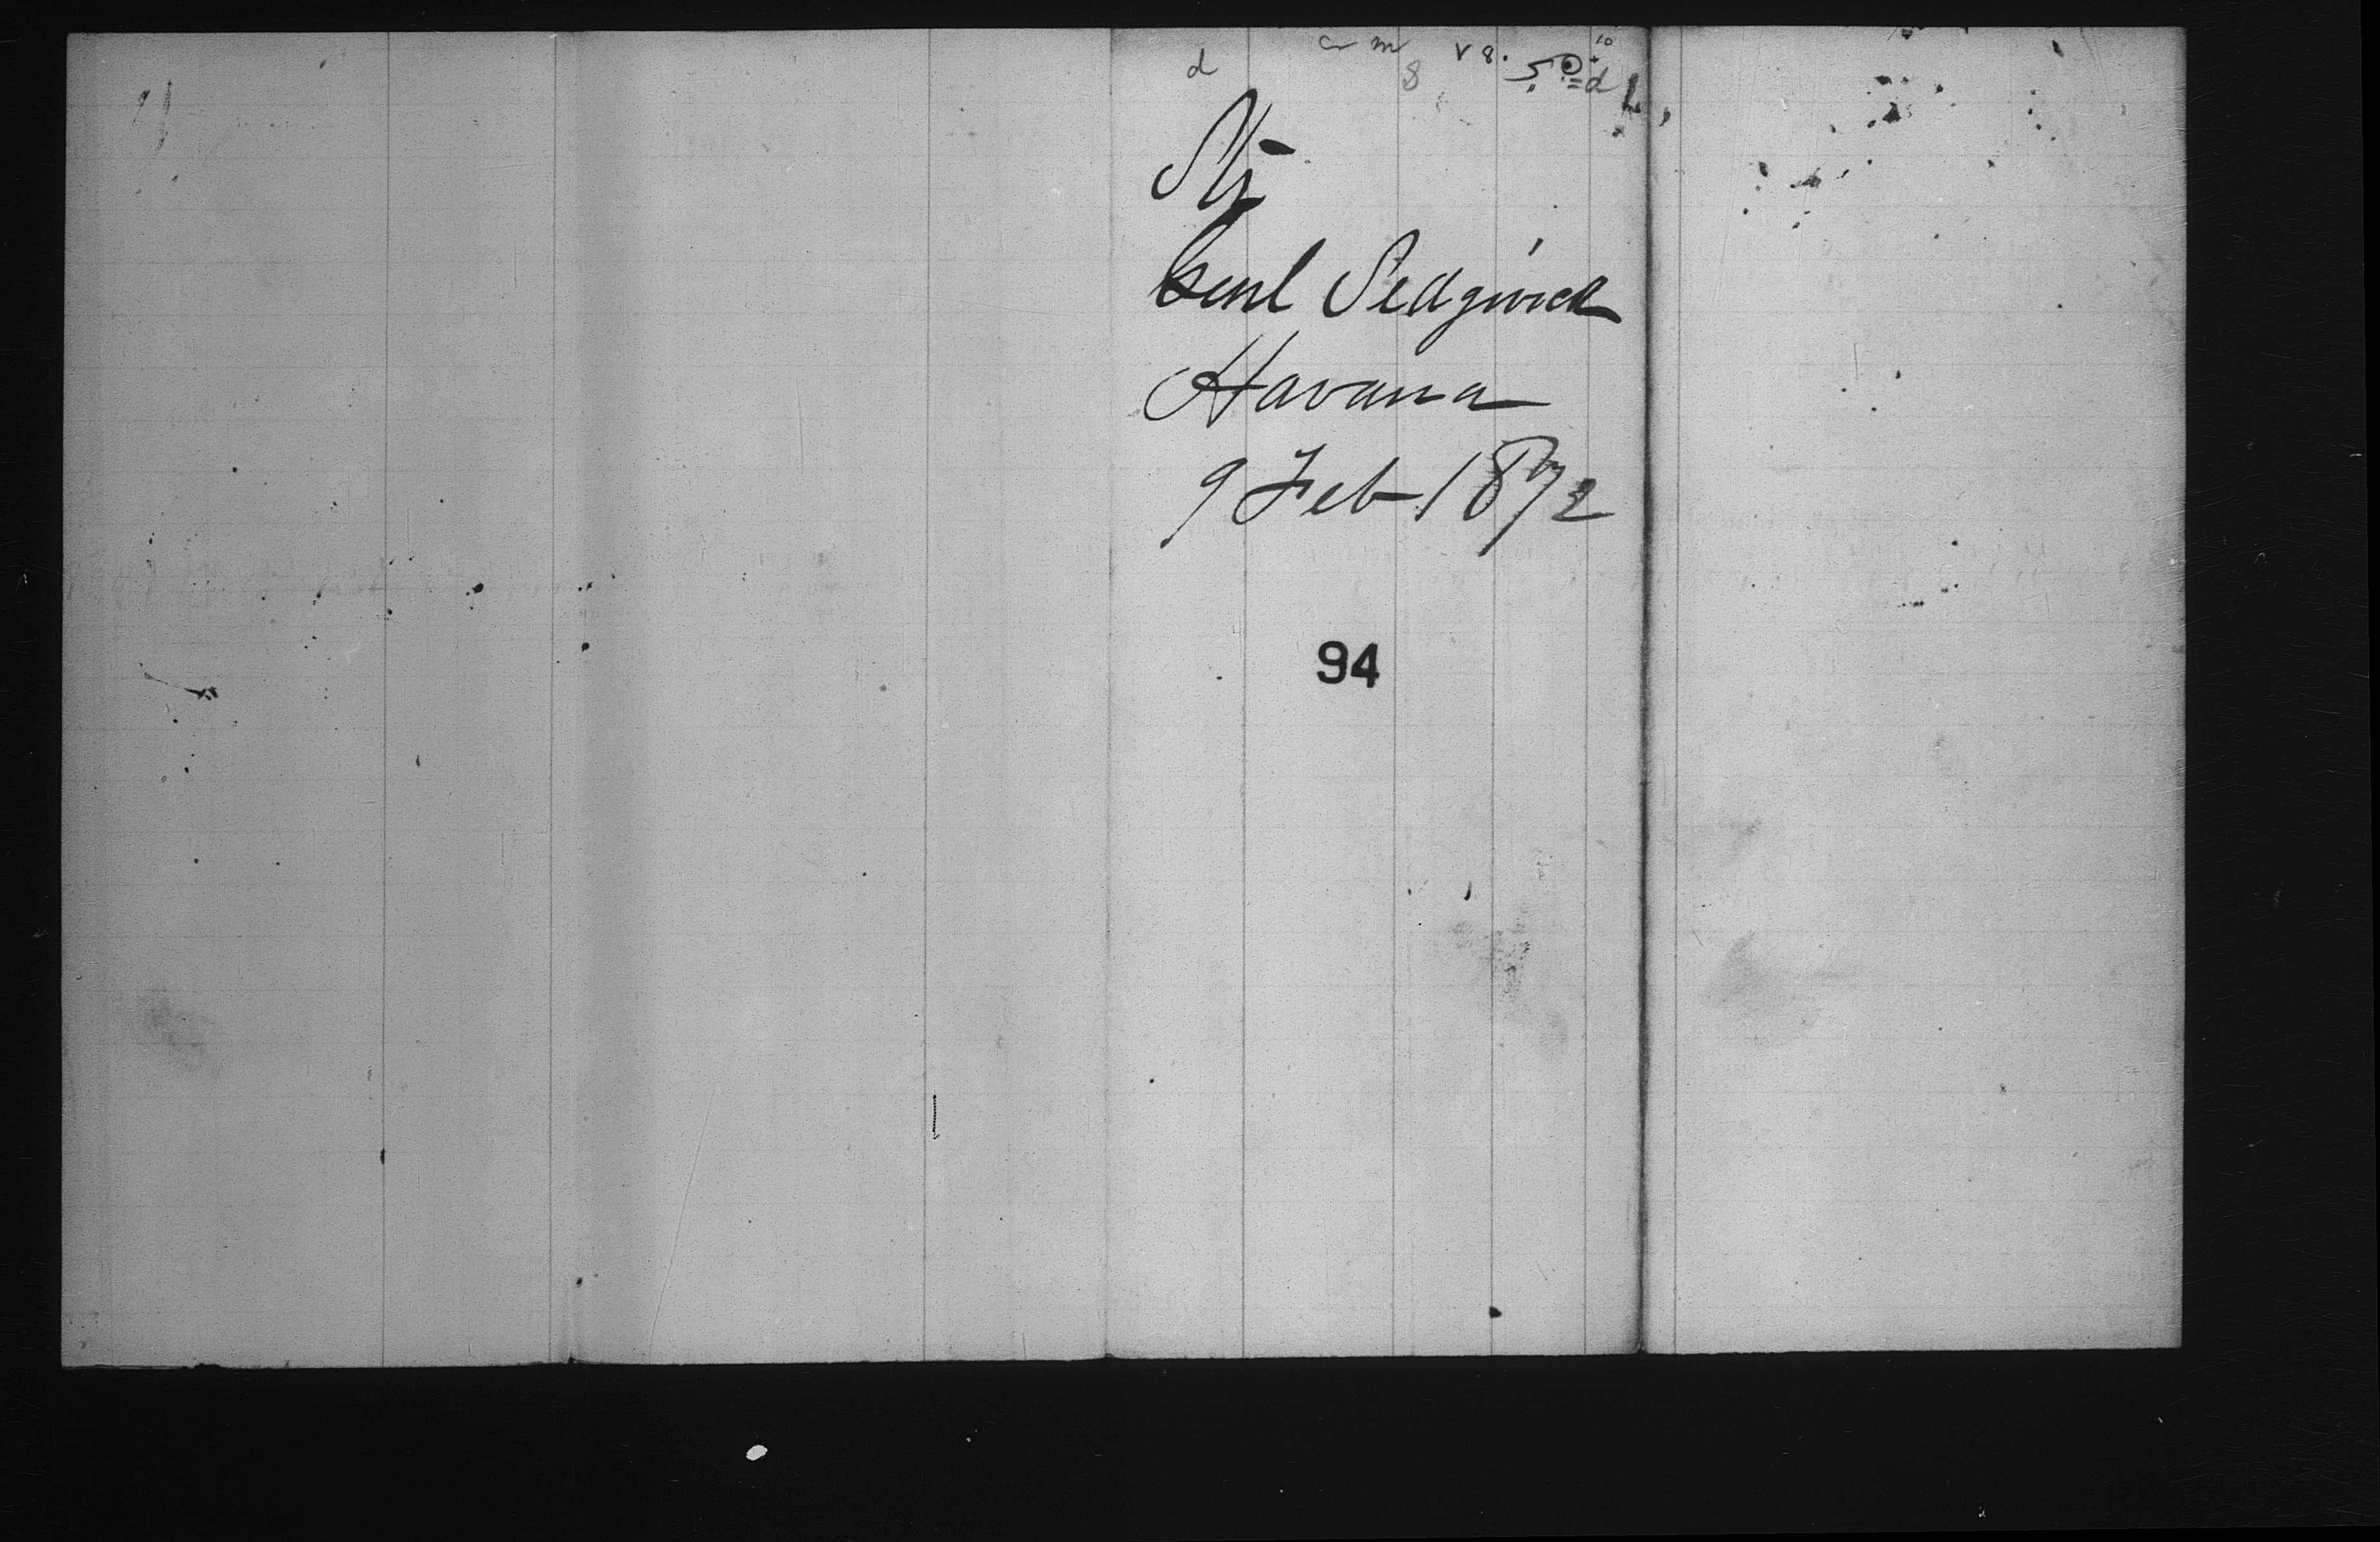 Str
Genl Sedgwick
Havana
9 Feb 1872
94